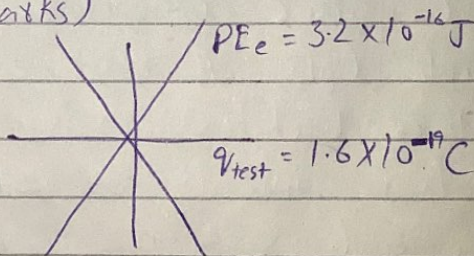 arks)
PEe = 3.2 x 10⁻¹⁶ J
qtest = 1.6 x 10⁻¹⁹ C